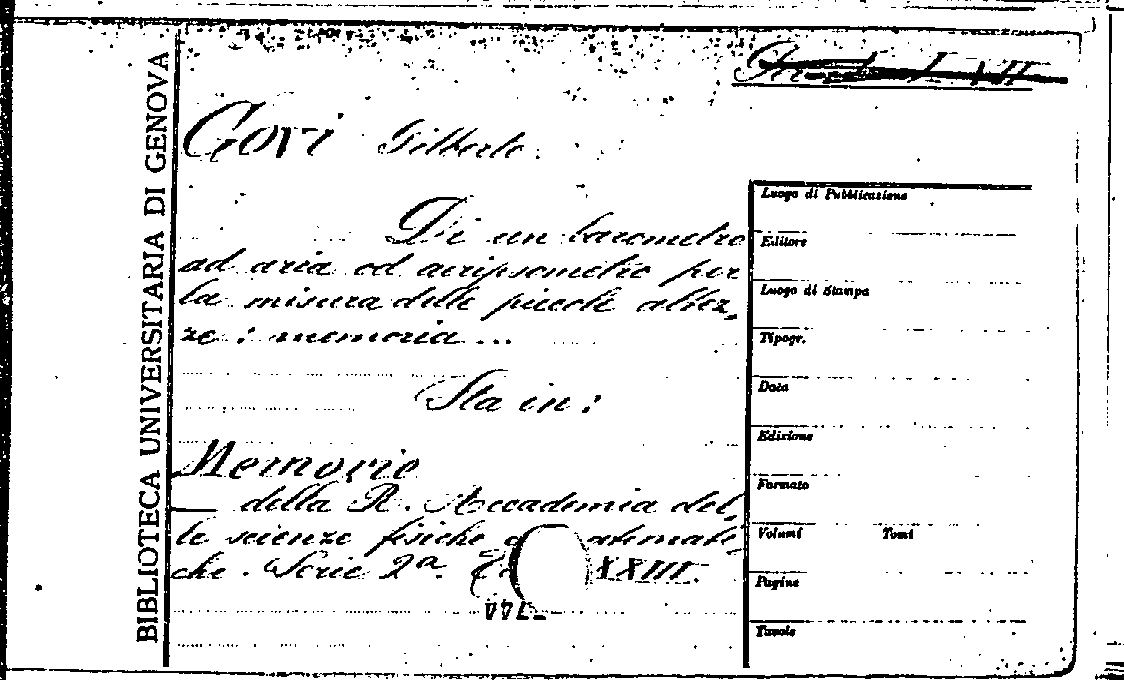 BIBLIOTECA UNIVERSITARIA DI GENOVA
Govi Gilberto.
Di un barometro
ad aria od aeripsometro per
la misura delle piccole altez,
ze : memoria ...
Sta in :
Memorie
della R. Accademia del,
le scienze fisiche
che. Serie 2ª. XXIII.
Luogo di Pubblicazione
Editore
Luogo di Stampa
Tipogr.
Data
Edizione
Formato
Volumi Tomi
Pagine
Tavole